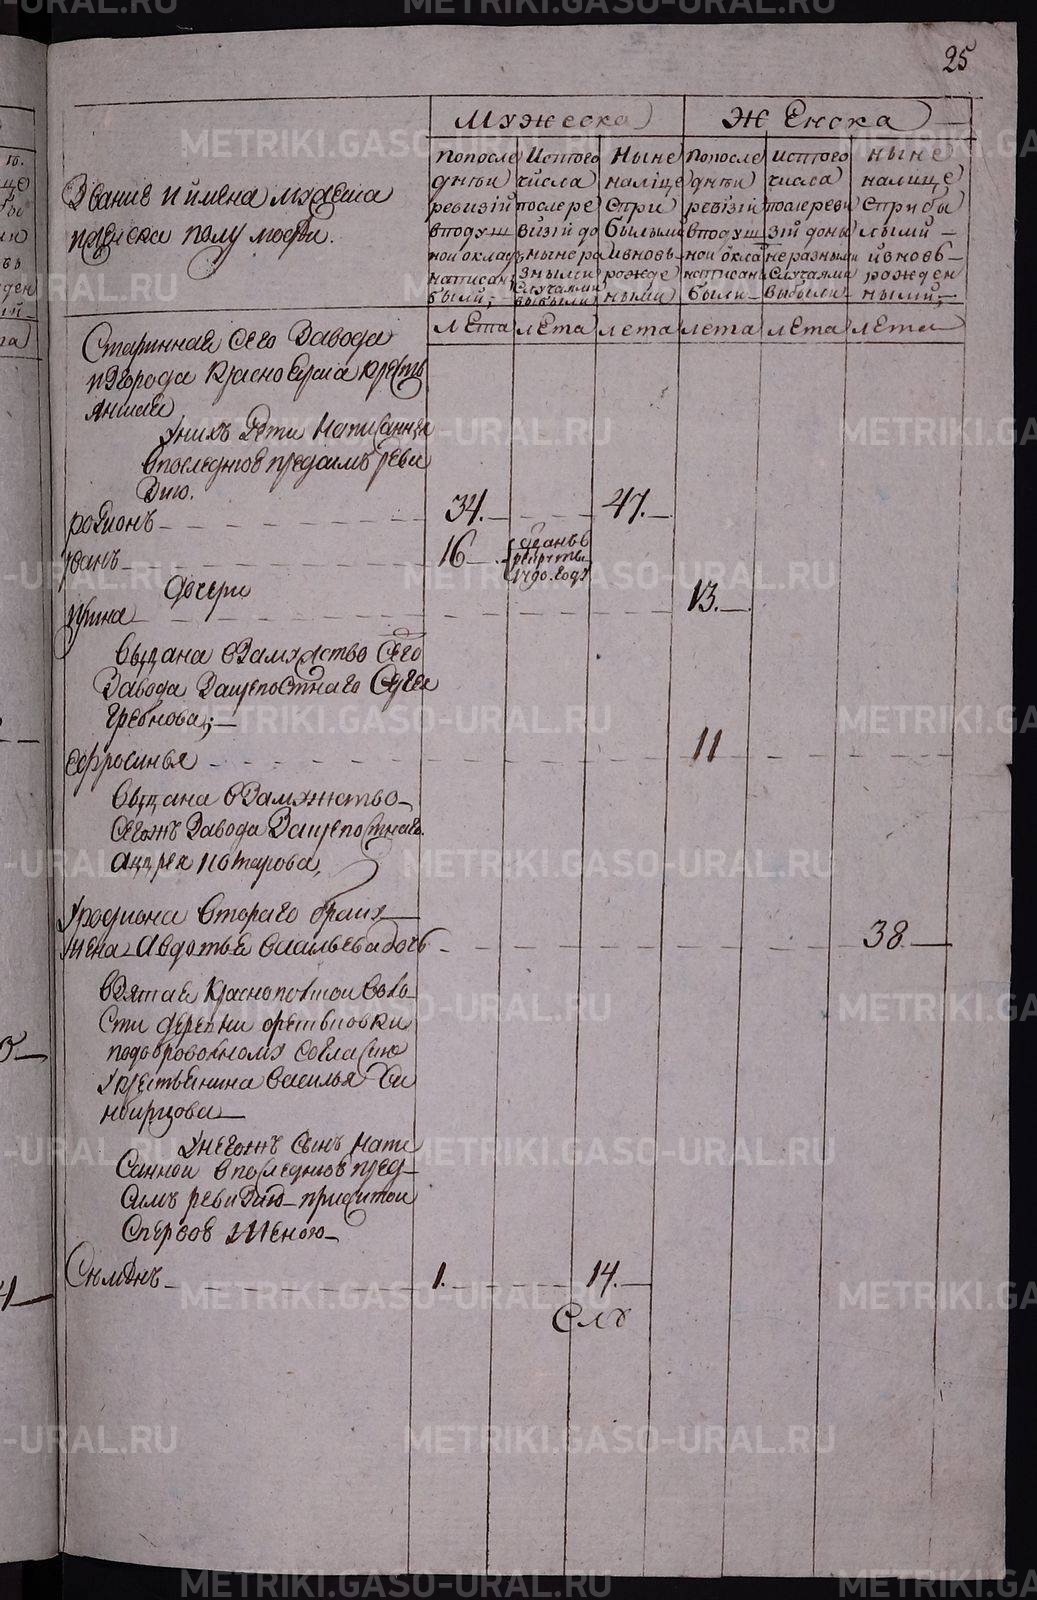 25
Мужеска
Женска
Звание и имена мужеска
и женска полу людей.
По последней ревизии в подушной оклад написаны были;
Из того числа после ревизии до ныне разными случаями выбыли
Ныне налице с прибылыми и вновь рожденными
По последней ревизии в подушной оклад написаны были
Из того числа после ревизии до ныне разными случаями выбыли
Ныне налице с прибылыми и вновь рожденными;
лета лета лета лета лета лета
Стариннае сего завода
из города
У них дети написанные
в последнюю пред сим реви
зию.
Родион 34. 47.
Иван 16
отдан в
рекруты
1790. году
Дочери
Ирина 13.
выдана в замужство сего
завода за
Сергея
Гребнова;
Ефросинья 11
выдана в замужство
сегож завода за
Андрея
У Родиона втораго браку
жена Авдотья Васильева дочь 38
взятая
воло
сти деревни
по добровольному согласию
у крестьянина Василья
У негож сын напи
санной в последнюю пред
сим ревизию прижитой
с первою женою
Семен 1. 14.
METRIKI.GASO-URAL.RU